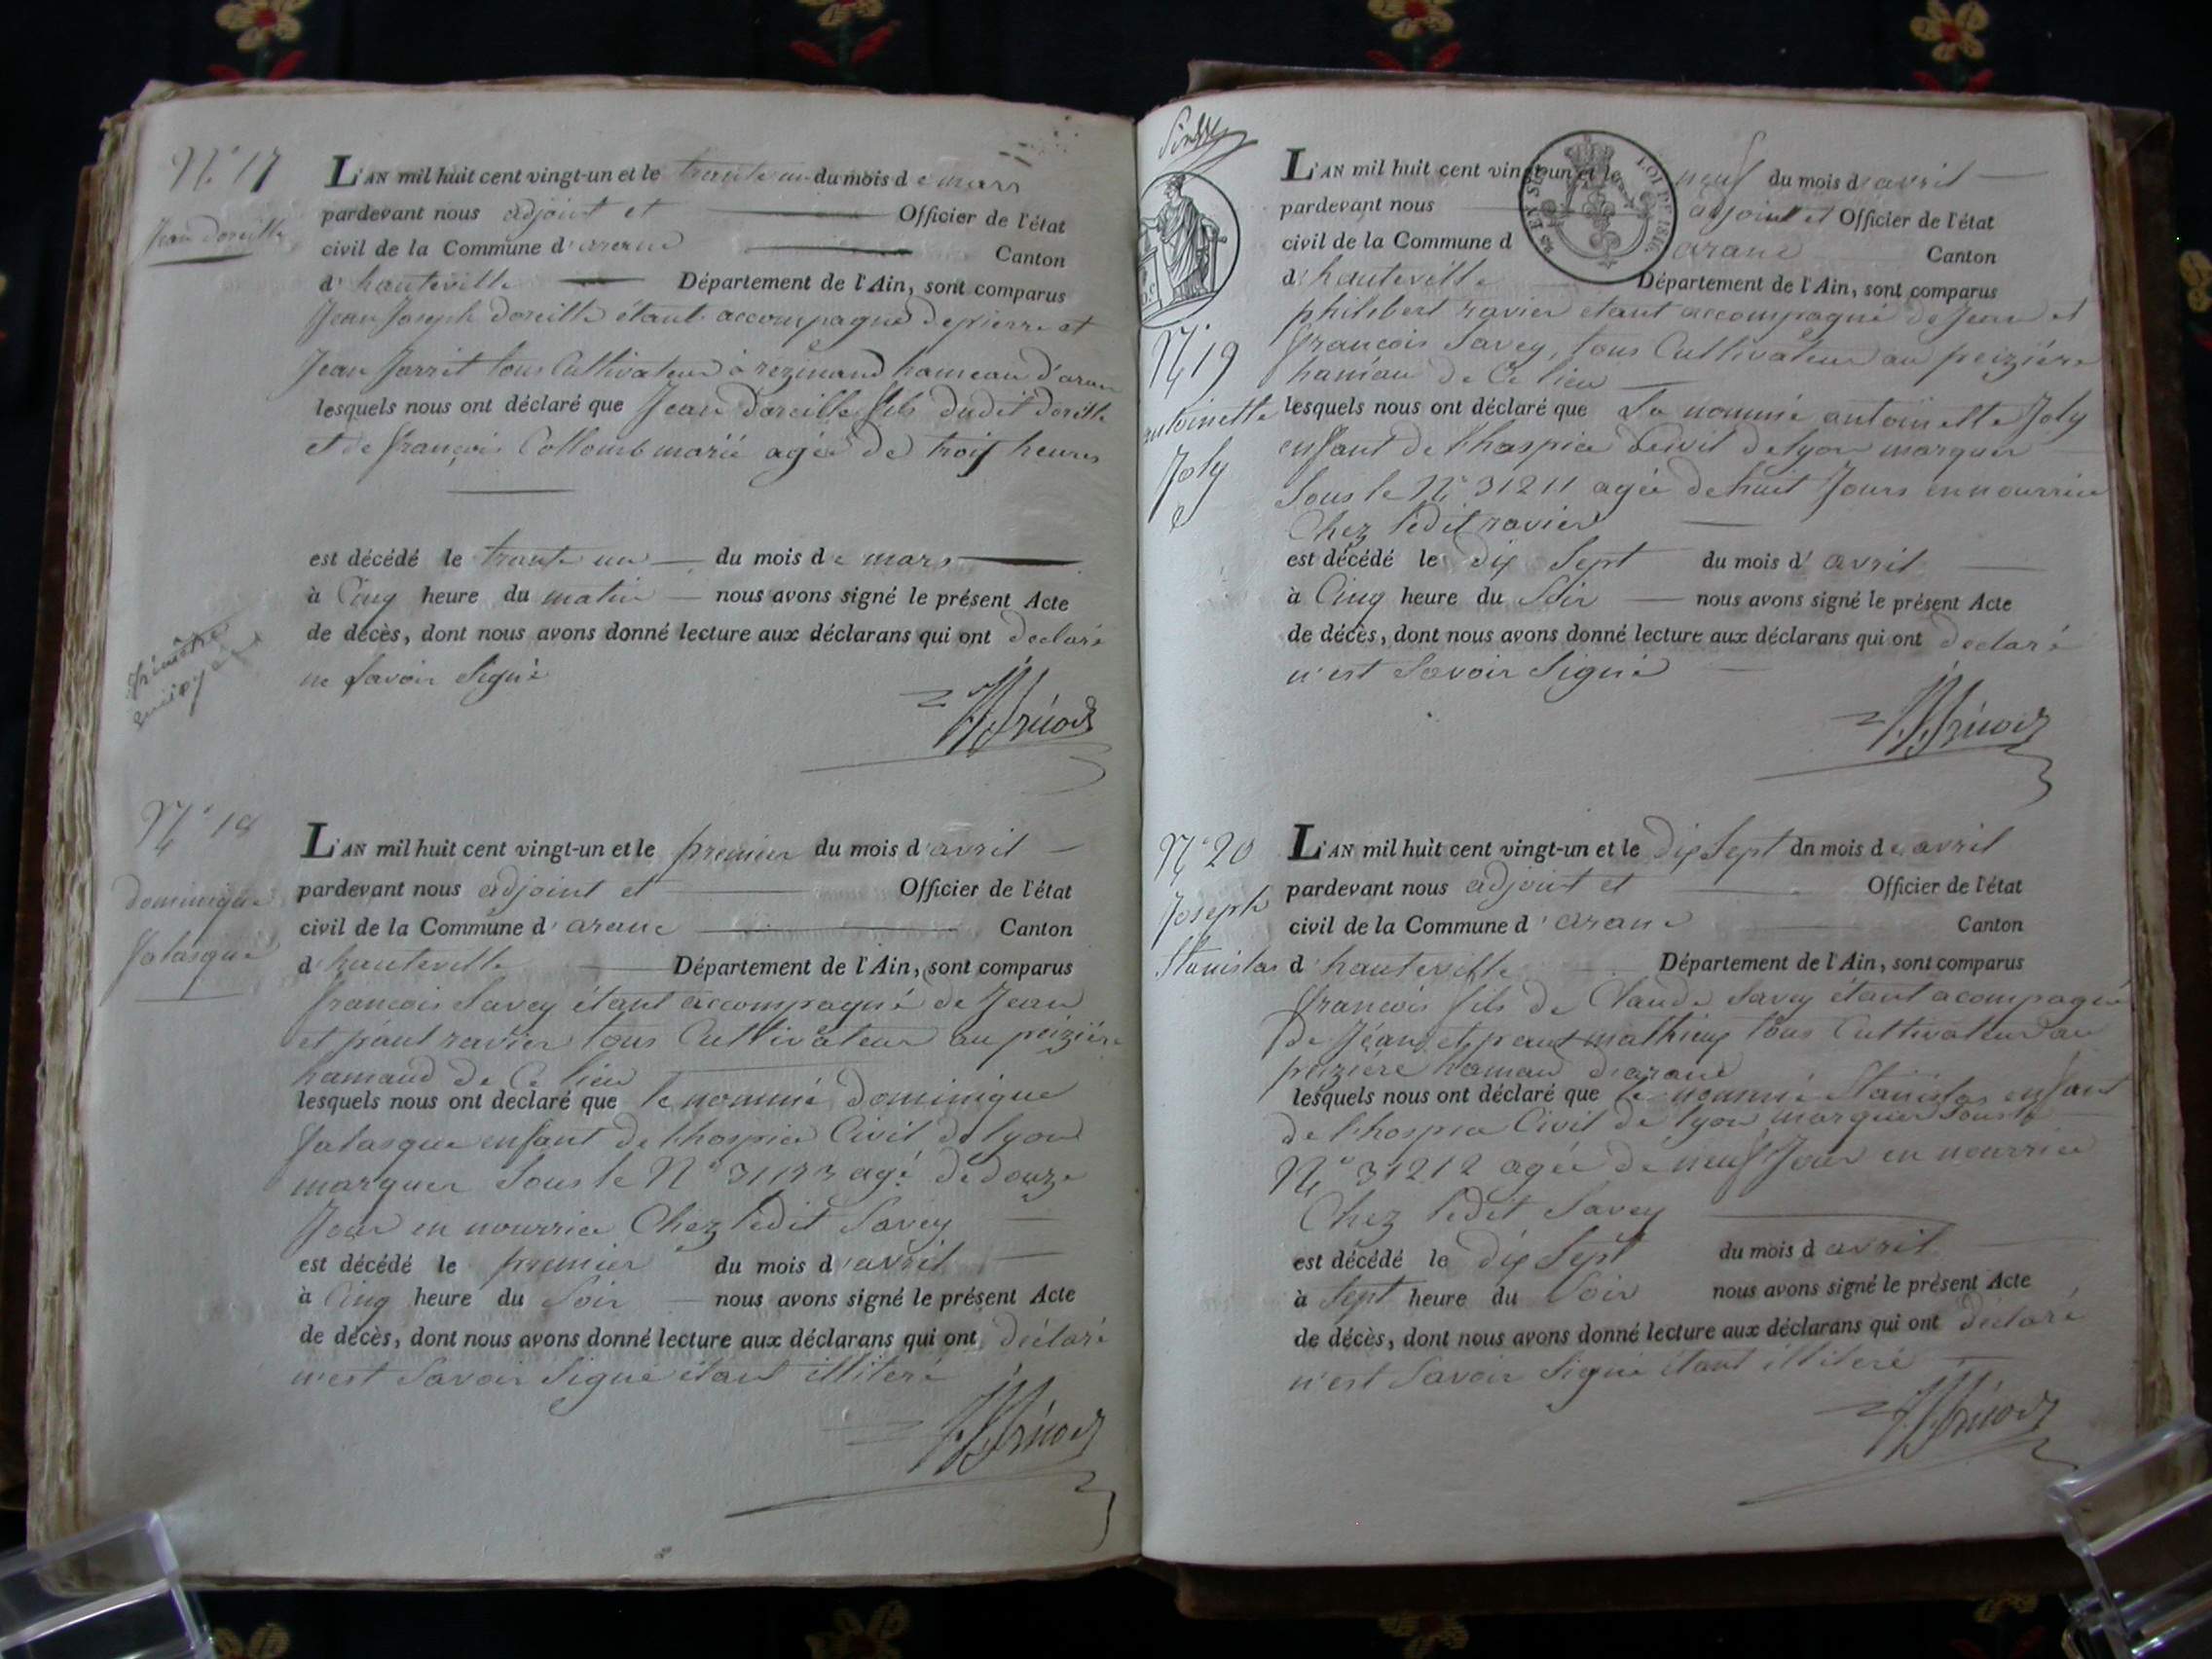 N.° 17
Jean Doreille
L'AN mil huit cent vingt-un et le trante un du mois de mars
pardevant nous adjoint et Officier de l'état
civil de la Commune d'arane Canton
d'hauteville Département de l'Ain, sont comparus
Jean Joseph Doreille étant accompagné de pierre et
Jean Jarrit tous Cultivateur à rezinand hameau d'aran
lesquels nous ont déclaré que Jean Doreille fils dudit doreille
et de françoise Collomb marié agée de trois heures
est décédé le trante un du mois de mars
à Cinq heure du matin nous avons signé le présent Acte
de décès, dont nous avons donné lecture aux déclarans qui ont declaré
ne Savoir Signé
N° 18
Dominique
falasque
L'AN mil huit cent vingt-un et le premier du mois d'avril
pardevant nous adjoint et Officier de l'état
civil de la Commune d'arane Canton
d'hauteville Département de l'Ain, sont comparus
francois Savey étant accompagné de Jean
et paul ravier tous Cultivateur au peizière
hamaud de Ce lieu
lesquels nous ont declaré que le nommé Dominique
falasque enfant de lhospice Civil de lyon
marquer Sous le N° agé de douze
Jour en nourrice Chez ledit Savey
est décédé le premier du mois d'avril
à Cinq heure du Soir nous avons signé le présent Acte
de décès, dont nous avons donné lecture aux déclarans qui ont déclaré
n'est Savoir Signé étant illiteré
LOI DE 1816.
N° 19
antoinette
Joly
L'AN mil huit cent vingt-un et le neuf du mois d'avril
pardevant nous adjoint et Officier de l'état
civil de la Commune d arane Canton
d'hauteville Département de l'Ain, sont comparus
philibert ravier étant accompagné de Jean et
francois Savey, tous Cultivateur au peizière
hamau de Ce lieu
lesquels nous ont déclaré que La nommé antoinette Joly
enfant de lhospice de lyon marquer
Sous le N° 31211 agée de huit Jours en nourrice
Chez ledit ravier
est décédé le dix Sept du mois d'avril
à Cinq heure du Soir nous avons signé le présent Acte
de décès, dont nous avons donné lecture aux déclarans qui ont declaré
n'est Savoir Signé
N° 20
Joseph
Stanislas
L'AN mil huit cent vingt-un et le dix Sept dn mois de avril
pardevant nous adjoint et Officier de l'état
civil de la Commune d'arane Canton
d'hauteville Département de l'Ain, sont comparus
francois fils de Claude Savey étant acompagné
De Jean et paul mathieux tous Cultivateur au
peizière hamau d'arane
lesquels nous ont déclaré que le nommé Stanislas enfant
de lhospice Civil de lyon marquer Sous le
N° 31212 agée de neuf Jour en nourrice
Chez ledit Savey
est décédé le dix Sept du mois d avril
à Sept heure du Soir nous avons signé le présent Acte
de décès, dont nous avons donné lecture aux déclarans qui ont déclaré
n'est Savoir Signé étant illiteré